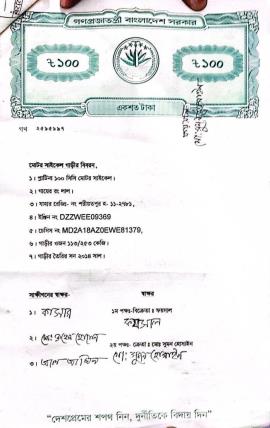 গণপ্রজাতন্ত্রী বাংলাদেশ সরকার
৳১০০ ৳১০০
একশত টাকা
মোটর সাইকেল গাড়ীর বিবরন,
১। প্লাটিনা ১০০ সিসি মোটর সাইকেল।
২। গায়ের রং লাল।
৩। যাহার রেজিঃ- নং শরীয়তপুর হ- ১১-২৭৬১,
৪। ইঞ্জিন নং DZZWEE09369
৫। চেসিস নং MD2A18AZ0EWE81379,
৬। গাড়ীর ওজন ১১৩/২৫৩ কেজি।
৭। গাড়ীর তৈরির সন ২০১৪ সাল।
সাক্ষীগনের স্বাক্ষর- স্বাক্ষর
১। কাসার ১ম পক্ষ-বিক্রেতা : ফয়সাল
ফয়সাল
২য় পক্ষ- ক্রেতা : মোঃ সুমন হোসাইন
২। মোঃ হোসেন মোঃ সুমন হোসাইন
৩।
"দেশপ্রেমের শপথ নিন, দুর্নীতিকে বিদায় দিন"